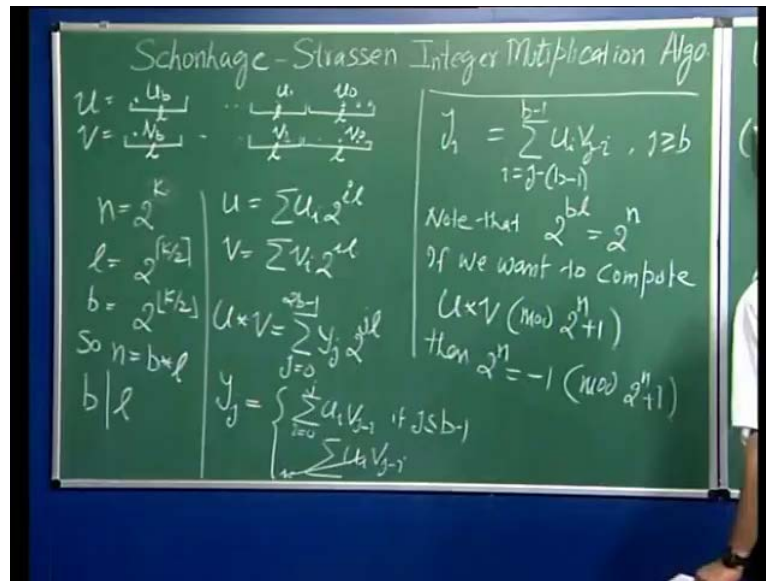 Schonhage-Strassen Integer Mutiplication Algo.
U = u_b ... u_1 u_0
l l l
V = v_b ... v_1 v_0
l l l
n = 2^k
l = 2^⌈k/2⌉
b = 2^⌊k/2⌋
So n = b*l
b | l
U = ∑ u_i 2^{il}
V = ∑ v_i 2^{il}
U * V = ∑_{j=0}^{2b-1} y_j 2^{jl}
y_j = { ∑_{i=0}^{j} u_i v_{j-i} if j ≤ b-1
∑ u_i v_{j-i}
y_j = ∑_{i=j-(b-1)}^{b-1} u_i v_{j-i} , j ≥ b
Note that 2^{bl} = 2^n
If we want to compute
U * V (mod 2^n+1)
then 2^n = -1 (mod 2^n+1)